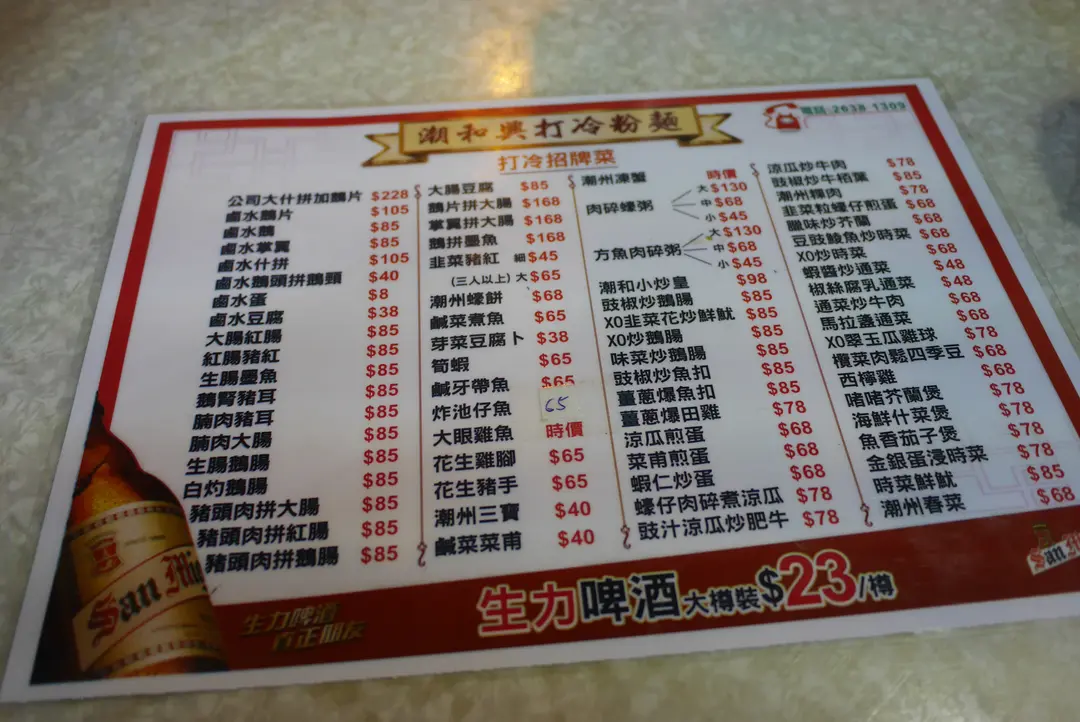 潮和興打冷粉麵
電話:2638 1309
打冷招牌菜
公司大什拼加鵝片 $228
鹵水鵝片 $105
鹵水鵝 $85
鹵水掌翼 $85
鹵水什拼 $105
鹵水鵝頭拼鵝頸 $40
鹵水蛋 $8
鹵水豆腐 $38
大腸紅腸 $85
紅腸豬紅 $85
生腸墨魚 $85
鵝腎豬耳 $85
腩肉豬耳 $85
腩肉大腸 $85
生腸鵝腸 $85
白灼鵝腸 $85
豬頭肉拼大腸 $85
豬頭肉拼紅腸 $85
豬頭肉拼鵝腸 $85
大腸豆腐 $85
鵝片拼大腸 $168
掌翼拼大腸 $168
鵝拼墨魚 $168
韭菜豬紅 細$45
(三人以上)大$65
潮州蠔餅 $68
鹹菜煮魚 $65
芽菜豆腐卜 $38
筍蝦 $65
鹹牙帶魚 $65
炸池仔魚 65
大眼雞魚 時價
花生雞腳 $65
花生豬手 $65
潮州三寶 $40
鹹菜菜甫 $40
潮州凍蟹 時價
大$130
肉碎蠔粥 中$68
小$45
大$130
方魚肉碎粥 中$68
小$45
潮和小炒皇 $98
豉椒炒鵝腸 $85
XO韭菜花炒鮮魷 $85
XO炒鵝腸 $85
味菜炒鵝腸 $85
豉椒炒魚扣 $85
薑蔥爆魚扣 $85
薑蔥爆田雞 $78
涼瓜煎蛋 $68
菜甫煎蛋 $68
蝦仁炒蛋 $68
蠔仔肉碎煮涼瓜 $78
豉汁涼瓜炒肥牛 $78
涼瓜炒牛肉 $78
豉椒炒牛栢葉 $85
潮州粿肉 $78
韭菜粒蠔仔煎蛋 $68
臘味炒芥蘭 $68
豆豉鯪魚炒時菜 $68
XO炒時菜 $68
蝦醬炒通菜 $48
椒絲腐乳通菜 $48
通菜炒牛肉 $68
馬拉盞通菜 $68
XO翠玉瓜雞球 $78
欖菜肉鬆四季豆 $68
西檸雞 $68
啫啫芥蘭煲 $78
海鮮什菜煲 $78
魚香茄子煲 $78
金銀蛋浸時菜 $78
時菜鮮魷 $85
潮州春菜 $68
San Mig
生力啤酒
真正朋友
生力啤酒大樽裝$23/樽
San Mi